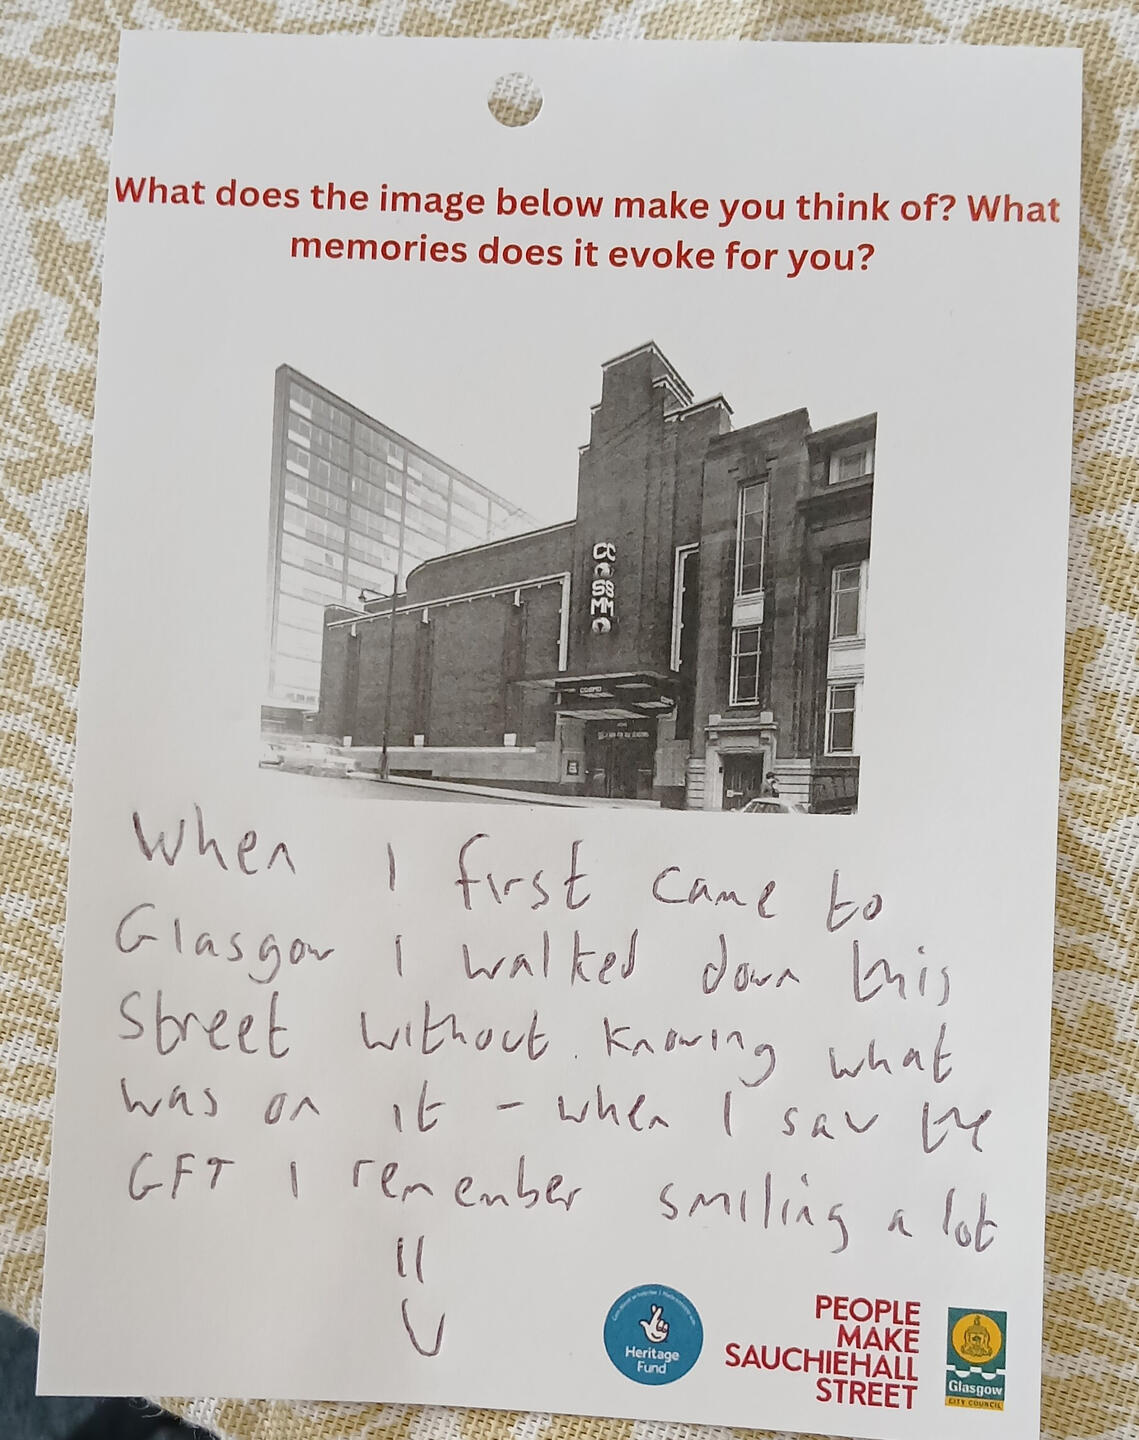 What does the image below make you think of? What
memories does it evoke for you?
COSMO
COSMO
When I first came to
Glasgow I walked down this
Street without knowing what
was on it - when I saw the
GFT I remember smiling a lot
Heritage
Fund
PEOPLE
MAKE
SAUCHIEHALL
STREET
Glasgow
CITY COUNCIL